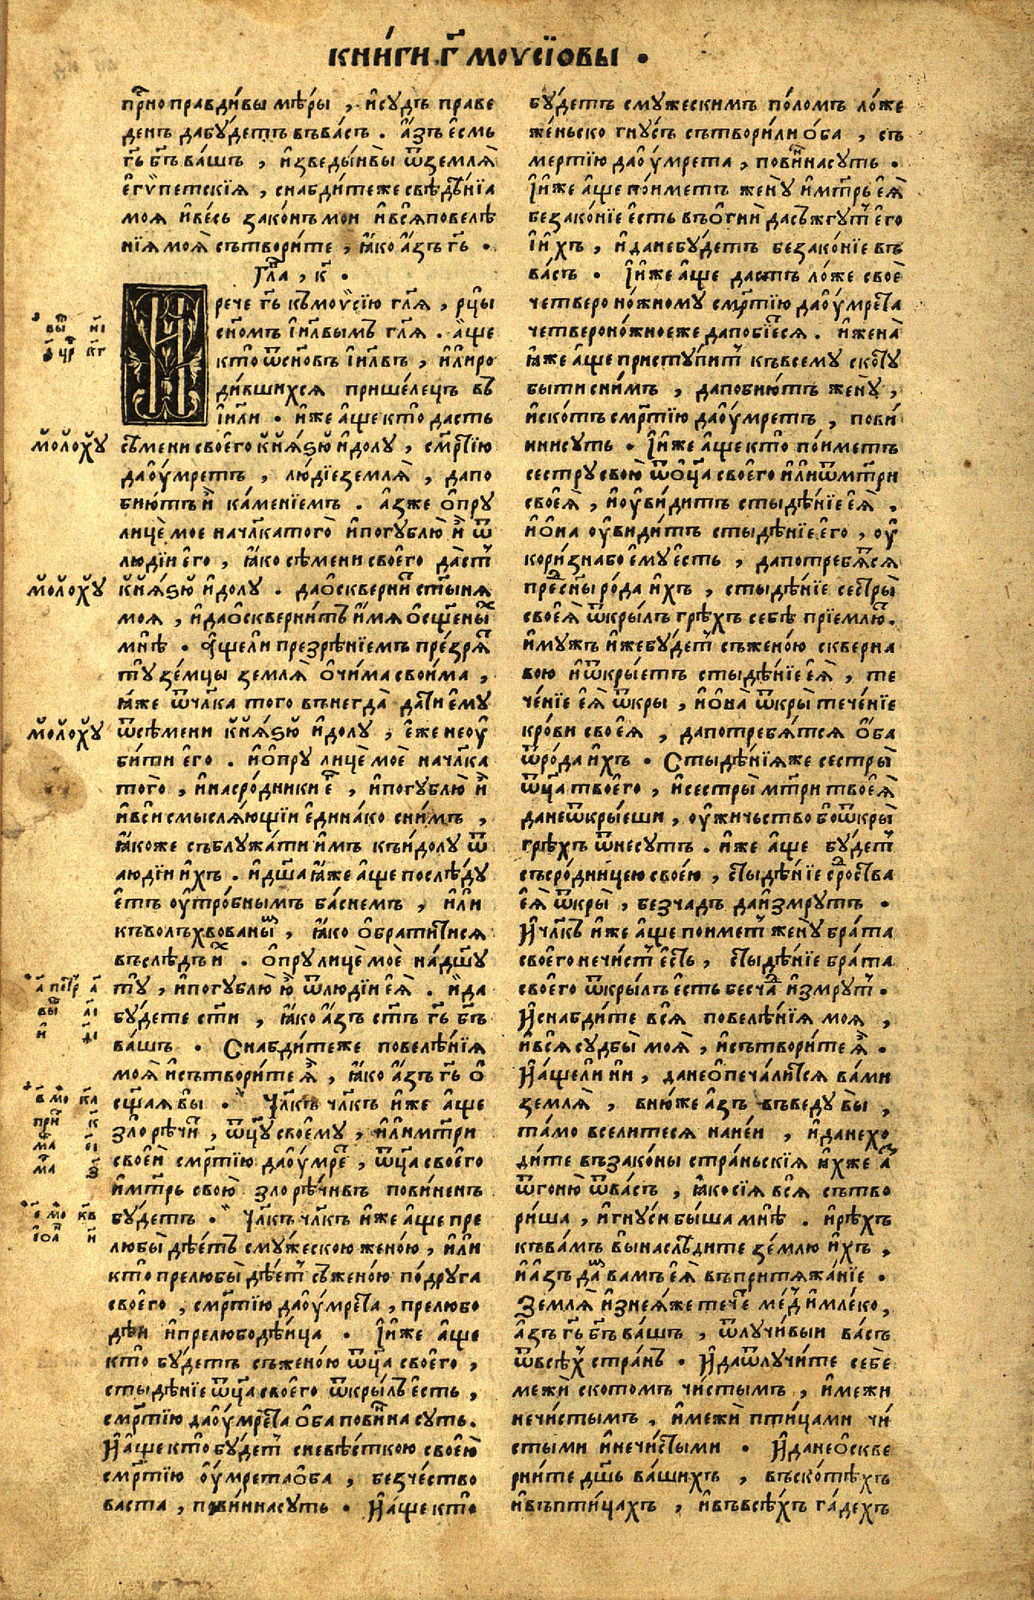 КНИГИ Г҃ МОѴСЇОВЫ .
пр҇но правдивы мѣры , и҆судъ праве
денъ дабудетъ въвасъ . а҆зъ є҆смь
гь҃ бг҃ъ вашъ , и҆зведыйвы ѿземля̀
є҆гѵпетскїѧ , снабдитеже свѣдѣнїа
моя и҆весь законъ мои и҆всѧповелѣ
нїѧ моѧ̀ сътворите , ꙗ҆ко а҆зъ гь҃ .
Гла҃ , к҃ .
И рече гь҃ къмоѵсїю гл҃ѧ , рцы
сн҃омъ і҆и҃лвымъ гл҃ѧ . а҆ще
кто ѿсн҃овъ і҆и҃лвъ , и҆лиро
дившихсѧ пришелецъ въ
і҆и҃ли . и҆же а҆ще кто дастъ
сѣмени своего кн҃ѧѕю и҆долу , смр҃тїю
дао҆умретъ , людїеземлѧ̀ , дапо
бїютъи҆ каменїемъ . а҆зже ѻ҆пру
лице мое начл҃катого и҆погублю и҆ ѿ
людїи є҆го , ꙗ҆ко сѣмени своего даст̾
кн҃ѧѕю и҆долу . даѻ҆скверни ст҃ынѧ
моя , и҆даѻ҆сквернитъ и҆мѧ ѻ҆сщ҃еных
мнѣ . А҆щели презрѣнїемъ презрѧт
туземцы землѧ̀ ѻ҆чима своима ,
ꙗ҆же ѿчл҃ка того вънегда дати є҆му
ѿсѣмени кн҃ѧѕю и҆долу , є҆же неоу
бити є҆го . и҆ѻ҆пру лице мое начл҃ка
того , и҆насродники є҆г , и҆погублю и҆х
и҆вси смыслѧющїи є҆динако снимъ ,
ꙗ҆коже съблужати и҆мъ къи҆долу ѿ
людїи и҆хъ . и҆дш҃а ꙗ҆же а҆ще послѣду
є҆тъ оу҆тробнымъ баснемъ , и҆ли
къволъхвованы , ꙗ҆ко ѻ҆братитисѧ
въслѣдъ и҆х . ѻ҆пру лице мое надш҃у
ту , и҆погублю ю҆ ѿлюдїи є҆ѧ̀ . и҆да
будете ст҃и , ꙗ҆ко а҆зъ ст҃ъ гь҃ бг҃ъ
вашъ . Снабдитеже повелѣнїѧ
моѧ̀ и҆сътворите ѧ҆ , ꙗ҆ко а҆зъ гь҃ ѻ҆
сщ҃аѧ вы . Чл҃къ чл҃къ и҆же а҆ще
зло речи , ѿц҃у своему , и҆лимт҃ри
своей смр҃тїю дао҆умре , ѿц҃а своего
и҆мт҃рь свою зло речивъ повиненъ
будетъ . Чл҃къ чл҃къ и҆же а҆ще пре
любы дѣетъ смужескою женою , и҆ли
кто прелюбы дѣет̾ съженою подруга
своего , смр҃тїю дао҆умрета , прелюбо
дѣи и҆прелюбодѣица . І҆и҆же а҆ще
кто будетъ съженою ѿц҃а своего ,
стыдѣнїе ѿц҃а своего ѿкрылъ є҆сть ,
смр҃тїю дао҆умрета ѻ҆ба повинна суть.
И҆а҆ще кто будет̾ сневѣсткою своею
смр҃тїю оу҆мретаѻ҆ба , безчество
васта , повиннасуть . И҆а҆ще кто
вы҃ ні
а҃ цр҃ кг
молоху
молоху
молоху
а҃ петр҃ а҃
вы҃ а҃і
и҃ д҃і
в҃ мо҃ ка
при҃ к
ма҃ еі
ма҃ з
е҃ мо҃ кв
іоа҃ и
будетъ смужескимъ поломъ ложе
женьско гнусъ сътворили ѻ҆ба , съ
мертїю дао҆умрета , повиннасуть .
І҆и҆же а҆ще поиметъ жену и҆мт҃рь є҆ѧ̀
безаконїе є҆сть въѻгни дасъжгут̾ є҆го
і҆и҆хъ , и҆данебудетъ безаконїе въ
васъ . І҆и҆же а҆ще дастъ ложе свое
четвероножному смр҃тїю дао҆умрета
четвероножноеже дапобїеся . и҆жена
ꙗ҆же а҆ще приступит̾ къвсему скоту
быти снимъ , дапобиютъ жену ,
и҆скотъ смр҃тїю дао҆умретъ , пови
ннисуть . І҆и҆же а҆ще кто поиметъ
сестру свою ѿѻ҆ц҃а своего и҆лиѿмт҃ри
своеѧ̀ , и҆оу҆видитъ стыдѣнїе є҆ѧ̀ ,
и҆ѻ҆на оу҆видитъ стыдѣнїе є҆го , оу҆
коризнабо є҆му є҆сть , дапотребѧсѧ
пред̾сн҃ы рода и҆хъ , стыдѣнїе сестры̀
своеѧ̀ ѿкрылъ грѣхъ себѣ прїемлют.
И҆мужъ и҆жебудет̾ съженою скверна
вою и҆ѿкрыетъ стыдѣнїе є҆ѧ̀ , те
ченїе є҆ѧ̀ ѿкры , и҆ѻ҆на ѿкры теченїе
крови своеѧ , дапотребѧтсѧ ѻ҆ба
ѿрода и҆хъ . Стыдѣнїѧже сестры̀
ѿц҃а твоего , и҆сестры мт҃ри твоеѧ̀
данеѿкрыеши , оу҆жичьство боѿкры̀
грѣхъ ѿнесутъ . и҆же а҆ще будет̾
съсродницею своею , стыдѣнїе сродства
є҆ѧ̀ ѿкры̀ , безчадъ даи҆змрутъ .
И҆чл҃къ и҆же а҆ще поимет̾ жену брата
своего нечист̾ є҆сть , стыдѣнїе брата
своего ѿкрылъ є҆сть бесчад и҆змрут̾ .
И҆снабдите всѧ повелѣнїя моя ,
и҆всѧ судбы моѧ̀ , и҆сътворите ѧ҆ .
И҆а҆щели ни , данеѻ҆печалитсѧ вами
землѧ̀ , внюже а҆зъ въведу вы ,
тамо вселитесѧ нанеи , и҆данехо
дите въ законы страньскїѧ и҆хже аз
ѿгоню ѿвасъ , ꙗ҆косїѧ всѧ сътво
риша , и҆гнуси быша мнѣ . и҆рѣхъ
къвамъ вынаслѣдите землю и҆хъ ,
и҆а҆зъ дам вамъ є҆ѧ̀ въпритѧжанїе .
Землѧ̀ и҆знеѧже тече мед̾ и҆млеко ,
а҆зъ гь҃ бг҃ъ вашъ , ѿлучивыи васъ
ѿвсѣх̾ странъ . И҆даѿлучите себе
межи скотомъ чистымъ , и҆межи
нечистымъ , и҆межи птицами чи
стыми и҆нечистыми . И҆данеѻ҆скве
рните дш҃ь вашихъ , въскотѣхъ
и҆въптицахъ , и҆въвсѣхъ гадехъ